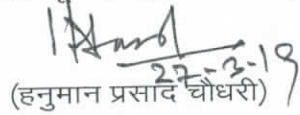 27-3-19
(हनुमान प्रसाद चौधरी)